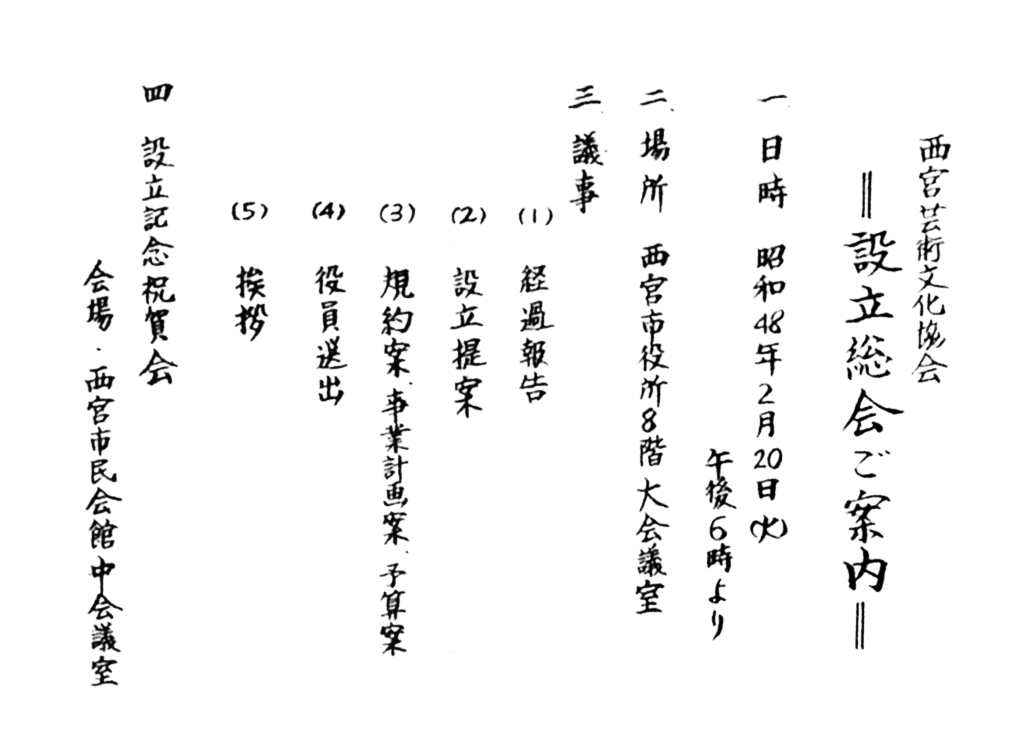 西宮芸術文化協会
＝設立総会ご案内＝
一、日時　昭和48年2月20日(火)
午後6時より
二、場所　西宮市役所8階大会議室
三、議事
(1)　経過報告
(2)　設立提案
(3)　規約案、事業計画案、予算案
(4)　役員選出
(5)　挨拶
四　設立記念祝賀会
会場・西宮市民会館中会議室